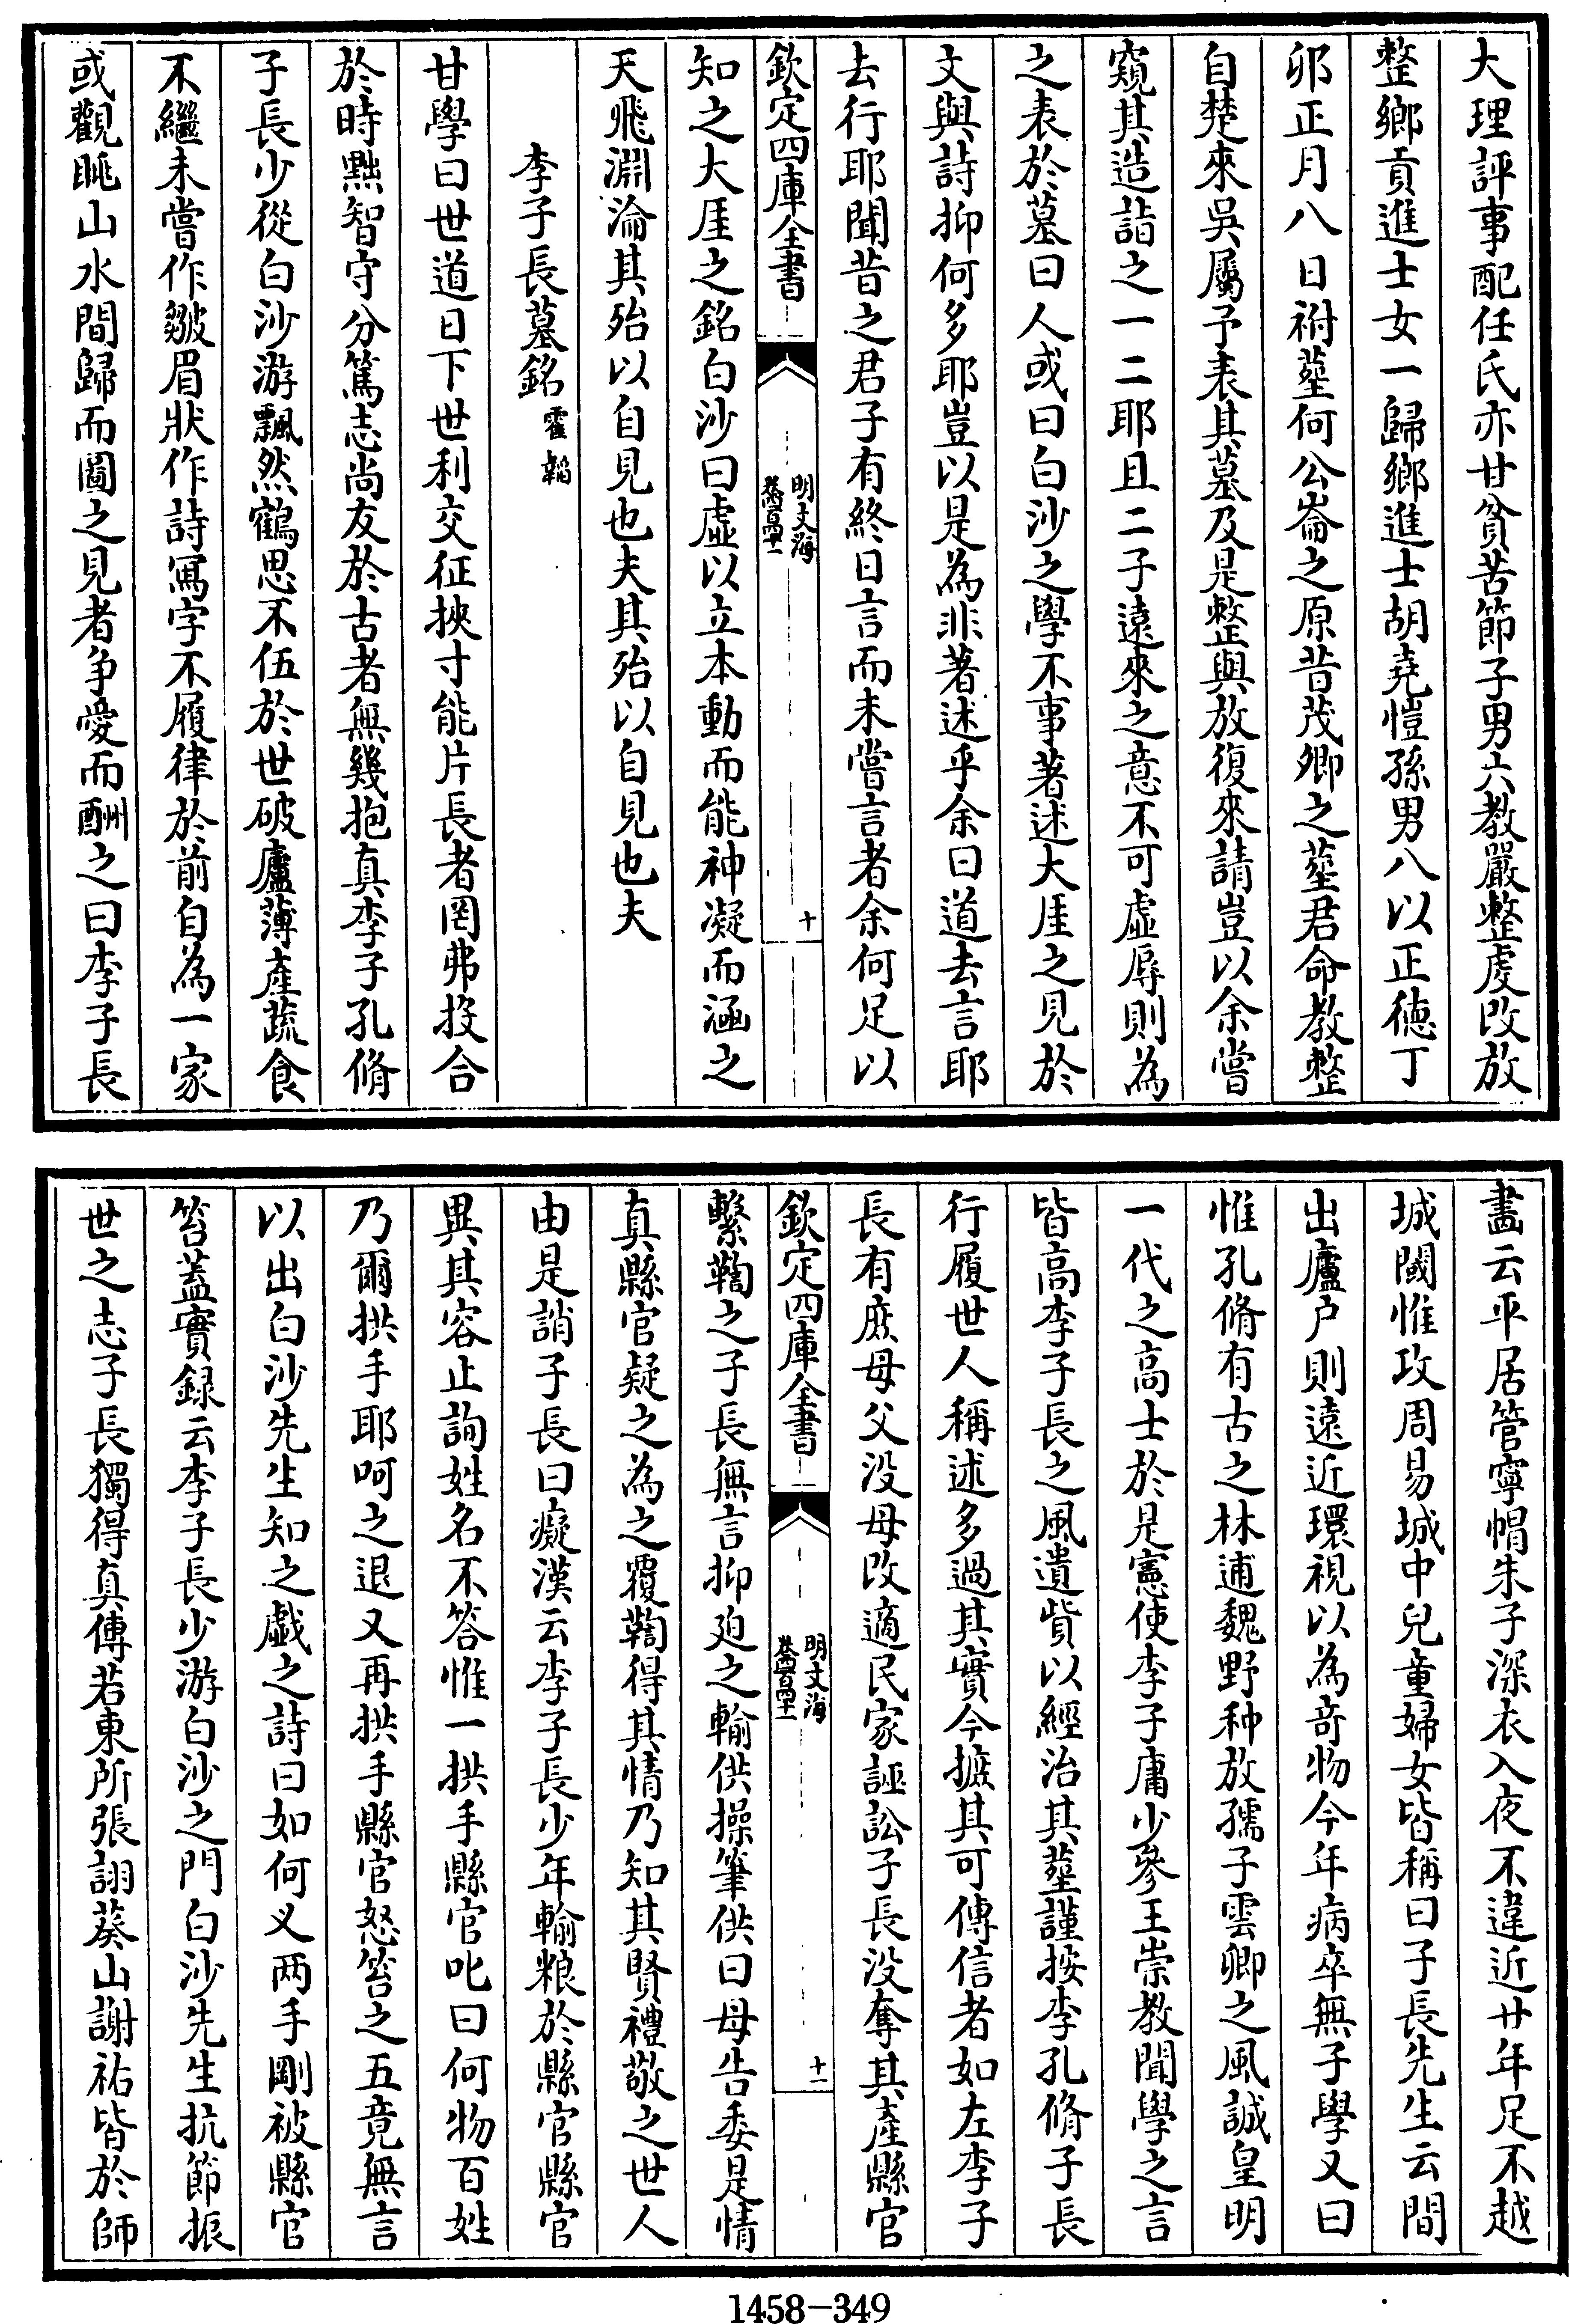 大理評事配任氏亦甘貧苦節子男六教嚴整虔改放
整鄉貢進士女一歸鄉進士胡堯愷孫男八以正德丁
卯正月八日祔葬何公崙之原昔茂卿之葬君命教整
自楚來吳屬予表其墓及是整與放復來請豈以余嘗
窺其造詣之一二耶且二子遠來之意不可虛辱則為
之表於墓曰人或曰白沙之學不事著述大厓之見於
文與詩抑何多耶豈以是為非著述乎余曰道去言耶
去行耶聞昔之君子有終日言而未嘗言者余何足以
欽定四庫全書
明文海
卷四百四十一
十
知之大厓之銘白沙曰虛以立本動而能神凝而涵之
天飛淵淪其殆以自見也夫其殆以自見也夫
李子長墓銘 霍韜
甘學曰世道日下世利交征挾寸能片長者罔弗投合
於時黜智守分篤志尚友於古者無幾抱真李子孔脩
子長少從白沙游飄然鶴思不伍於世破廬薄產蔬食
不繼未嘗作皺眉狀作詩寫字不履律於前自為一家
或觀眺山水間歸而圖之見者争愛而酬之曰李子長
畫云平居管寧帽朱子深衣入夜不違近廿年足不越
城闉惟攻周易城中兒童婦女皆稱曰子長先生云間
出廬户則遠近環視以為奇物今年病卒無子學又曰
惟孔脩有古之林逋魏野种放孺子雲卿之風誠皇明
一代之高士於是憲使李子庸少參王崇教聞學之言
皆高李子長之風遺貲以經治其葬謹按李孔脩子長
行履世人稱述多過其實今摭其可傳信者如左李子
長有庶母父没母改適民家誣訟子長没奪其產縣官
欽定四庫全書
明文海
卷四百四十一
十一
繫鞫之子長無言抑廹之輸供操筆供曰母告委是情
真縣官疑之為之覆鞫得其情乃知其賢禮敬之世人
由是誚子長曰癡漢云李子長少年輸粮於縣官縣官
異其容止詢姓名不答惟一拱手縣官叱曰何物百姓
乃爾拱手耶呵之退又再拱手縣官怒笞之五竟無言
以出白沙先生知之戲之詩曰如何义两手剛被縣官
笞蓋實録云李子長少游白沙之門白沙先生抗節振
世之志子長獨得真傳若東所張詡葵山謝祐皆於師
1458-349